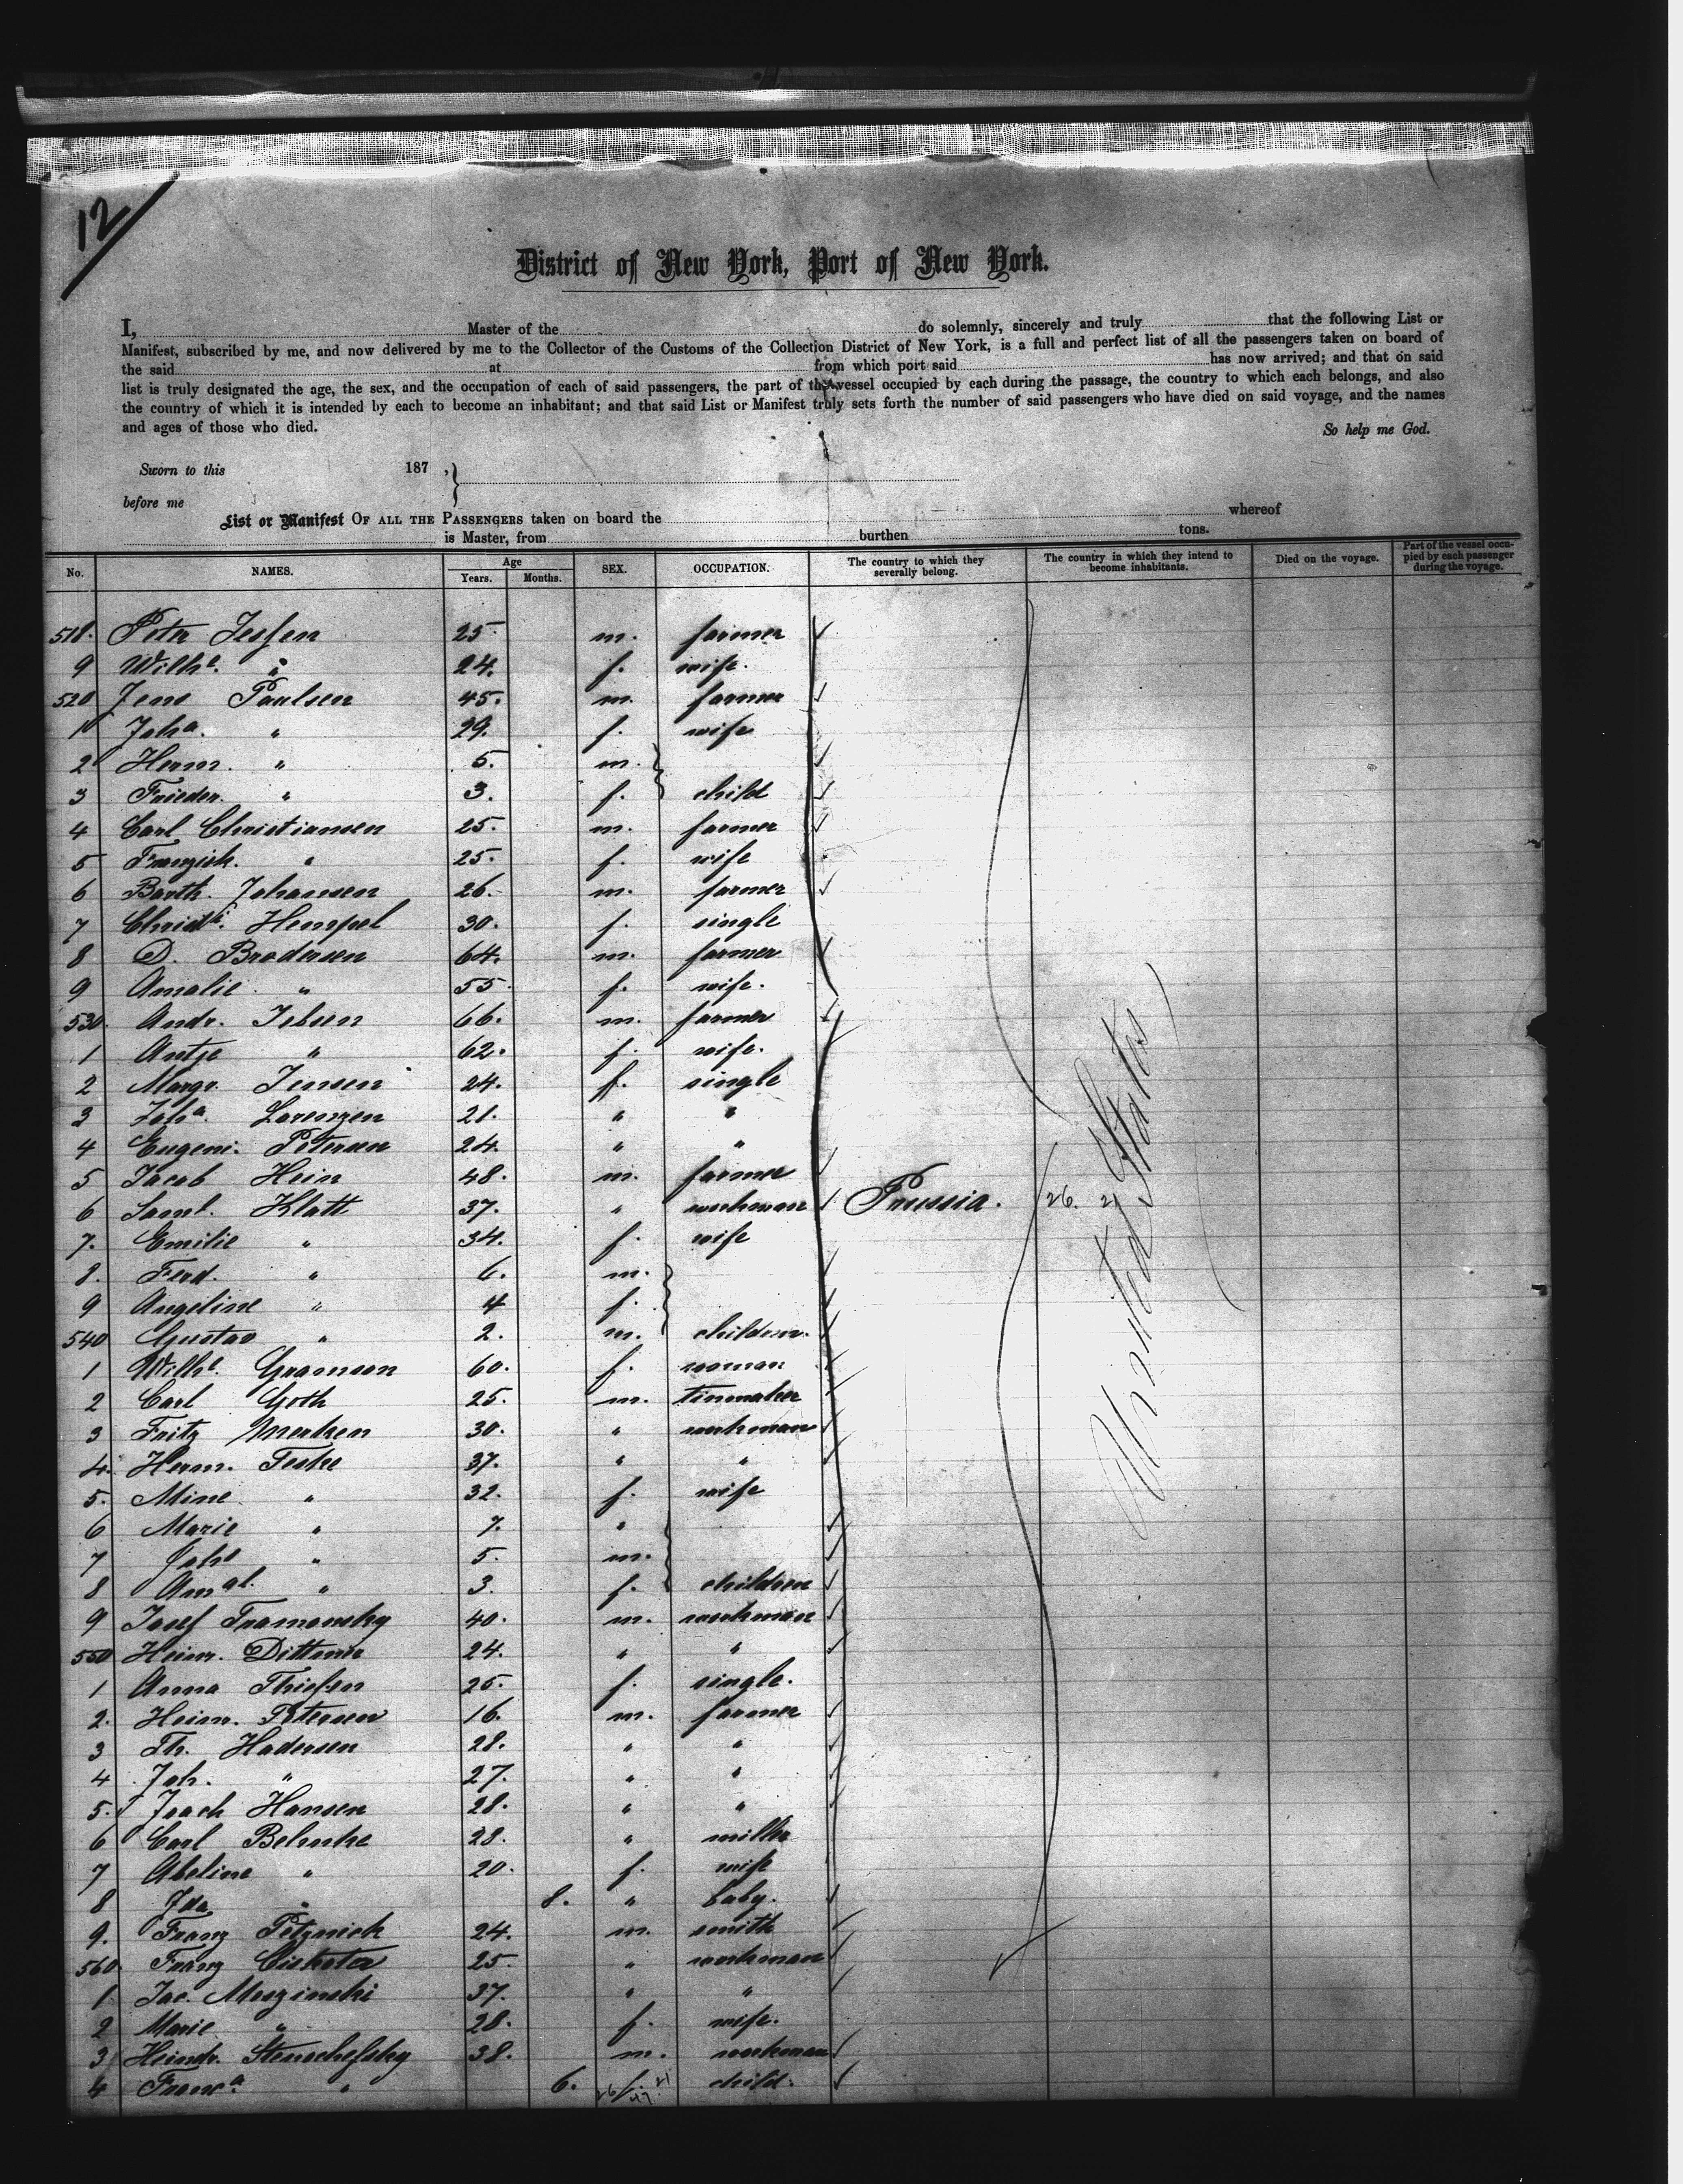 12
District of New York, Port of New York.
I, Master of the do solemnly, sincerely and truly that the following List or
Manifest, subscribed by me, and now delivered by me to the Collector of the Customs of the Collection District of New York, is a full and perfect list of all the passengers taken on board of
the said at from which port said has now arrived; and that on said
list is truly designated the age, the sex, and the occupation of each of said passengers, the part of the vessel occupied by each during the passage, the country to which each belongs, and also
the country of which it is intended by each to become an inhabitant; and that said List or Manifest truly sets forth the number of said passengers who have died on said voyage, and the names
and ages of those who died. So help me God.
Sworn to this 187 , }
before me
List or Manifest OF ALL THE PASSENGERS taken on board the whereof
is Master, from burthen tons.
No. NAMES. Age Years. Months. SEX. OCCUPATION. The country to which they severally belong. The country in which they intend to become inhabitants. Died on the voyage. Part of the vessel occupied by each passenger during the voyage.
518. Peter Jessen 25. m. farmer
9 Wilhe. " 24. f. wife.
520 Jens Paulsen 45. m. farmer
1 Joha. " 29. f. wife
2 Herm. " 5. m.
3 Frieder. " 3. f. child
4 Carl Christiansen 25. m. farmer
5 Franzisk. " 25. f. wife
6 Barth. Johannsen 26. m. farmer
7 Hempel 30. f. single
8 D. Brodersen 64. m. farmer
9 Amalie " 55. f. wife.
530. Andr. Iebsen 66. m. farmer
1 Antje " 62. f. wife.
2 Margr. Jensen 24. f. single
3 Joha. Lorenzen 21. " "
4 Eugeni. Petersen 24. " "
5 Jacob Hein 48. m. farmer
6 Saml. Klatt 37. " workman Prussia. 26. 21 United States
7. Emilie " 34. f. wife
8. Ferd. " 6. m.
9 Angeline " 4 f.
540 Gustav " 2. m. children.
1 Wilhe. Gramson 60. f. woman
2 Carl Goth 25. m. tinmaker
3 Fritz 30. " workman
4. Herm. Teske 37. " "
5. Mine " 32. f. wife
6 Marie " 7. "
7 Johs " 5. m.
8 Amal. " 3. f. children
9 Josef Tramonsky 40. m. workman
550 Heinr. Dittmer 24. " "
1 Anna Thiessen 25. f. single.
2. Heinr. Petersen 16. m. farmer
3 Th. Hadersen 28. " "
4 Joh. " 27. " "
5. Joach Hansen 28. " "
6 Carl Behnke 28. " miller
7 Abeline " 20. f. wife
8 Ida " 8. " baby.
9. Franz Petznick 24. m. smith
560. Franz 25. " workman
1 Jac. 37. " "
2 Marie " 28. f. wife.
3 Heindr. 38. m. workman
4 Franca. " 6. f. child.